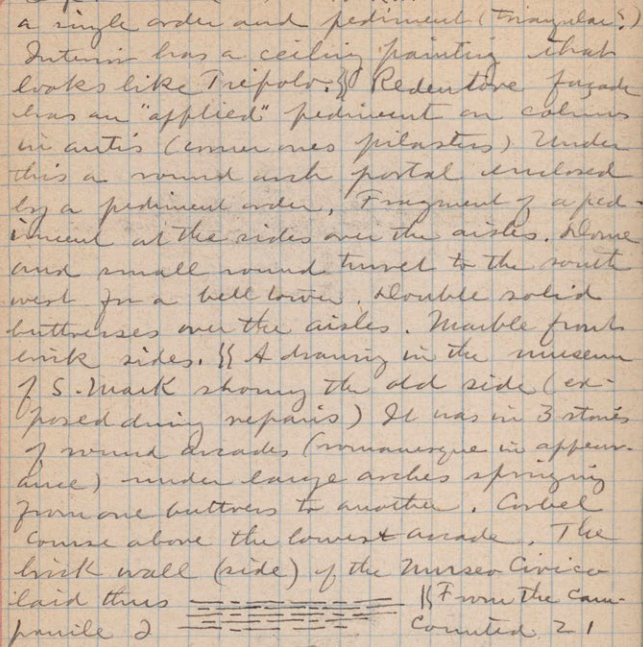 a single order and pediment (triangular?)
Interior has a ceiling painting that
looks like Triepolo. §§ Redentore façade
has an "applied" pediment on colums
in antis (corner ones pilasters) Under
this a round arch portal enclosed
by a pediment order. Fragment of a ped-
iment at the sides over the aisles. Dome
and small round turret to the south
west for a bell tower. Double solid
buttresses over the aisles. Marble front
brick sides. §§ A drawing in the museum
of S. Mark showing the old side (ex-
posed during repairs) It was in 3 stories
of round arcades (romanesque in appear-
ance) under large arches springing
from one buttress to another. Corbel
course above the lowest arcade. The
brick wall (side) of the Museo Civico
laid thus §§ From the cam-
panile I counted 21